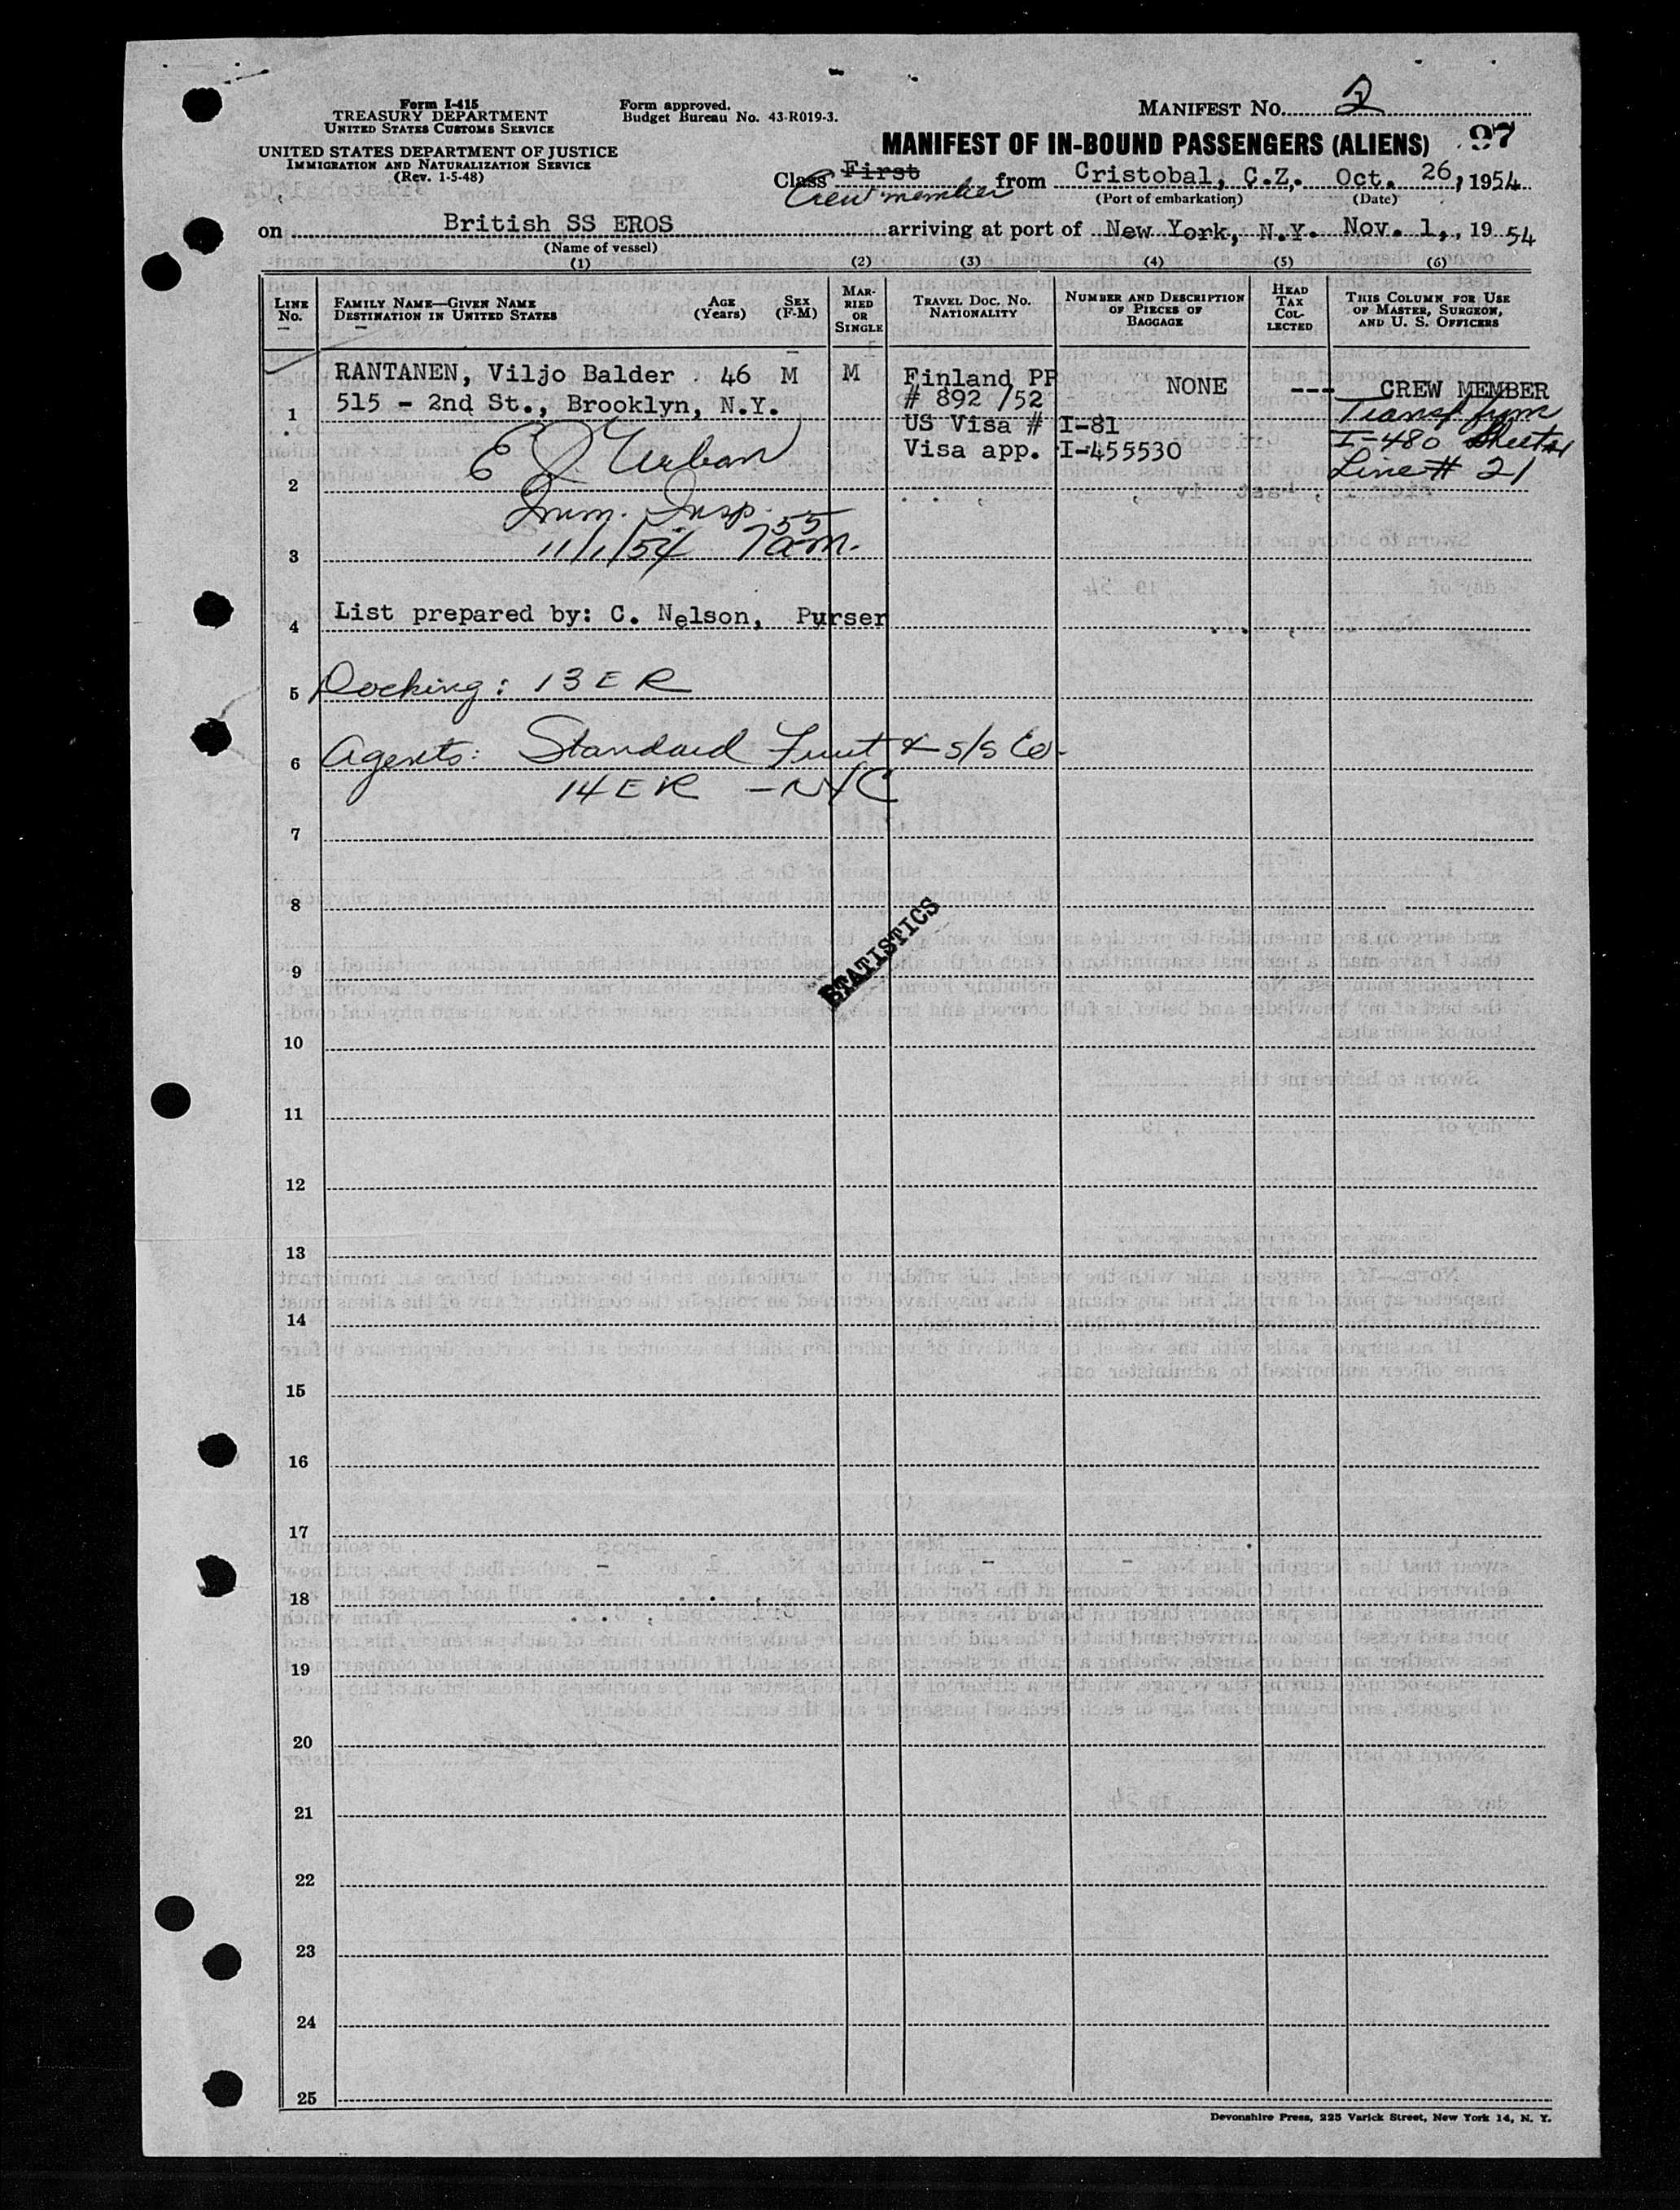 Form I-415
TREASURY DEPARTMENT
UNITED STATES CUSTOMS SERVICE
UNITED STATES DEPARTMENT OF JUSTICE
IMMIGRATION AND NATURALIZATION SERVICE
(Rev. 1-5-48)
Form approved.
Budget Bureau No. 43-R019-3.
MANIFEST NO. 2
MANIFEST OF IN-BOUND PASSENGERS (ALIENS) 97
Class First from Cristobal, C.Z. Oct. 26, 1954
Crew member (Port of embarkation) (Date)
on British SS EROS arriving at port of New York, N.Y. Nov. 1, , 19 54
(Name of vessel)
(1) (2) (3) (4) (5) (6)
LINE No. FAMILY NAME—GIVEN NAME DESTINATION IN UNITED STATES AGE (Years) SEX (F-M) MARRIED OR SINGLE TRAVEL DOC. NO. NATIONALITY NUMBER AND DESCRIPTION OF PIECES OF BAGGAGE HEAD TAX COLLECTED THIS COLUMN FOR USE OF MASTER, SURGEON, AND U. S. OFFICERS
RANTANEN, Viljo Balder . 46 M M Finland PP NONE --- CREW MEMBER
1 515 - 2nd St., Brooklyn, N.Y. # 892 /52 Transf from
US Visa # I-81 I-480 Sheet #1
E J Urban Visa app. I-455530 Line # 21
2
Imm. Insp.
3 11/1/54 7 55 am.
4 List prepared by: C. Nelson, Purser
5 Docking: 13 E R
6 Agents: Standard Fruit & S/S Co.
14 E R - NYC
7
8
STATISTICS
9
10
11
12
13
14
15
16
17
18
19
20
21
22
23
24
25
Devonshire Press, 225 Varick Street, New York 14, N. Y.